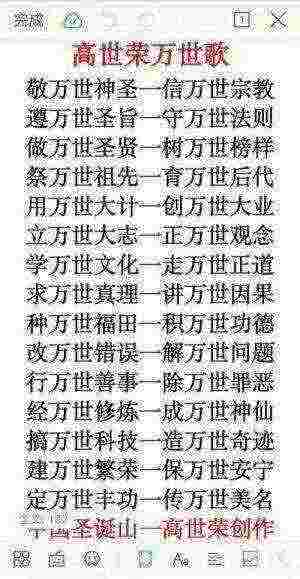 完成
1
高世荣万世歌
敬万世神圣一信万世宗教
遵万世圣旨一守万世法则
做万世圣贤一树万世榜样
祭万世祖先一育万世后代
用万世大计一创万世大业
立万世大志一正万世观念
学万世文化一走万世正道
求万世真理一讲万世因果
种万世福田一积万世功德
改万世错误一解万世问题
行万世善事一除万世罪恶
经万世修炼一成万世神仙
搞万世科技一造万世奇迹
建万世繁荣一保万世安宁
定万世丰功一传万世美名
中国圣诞山一高世荣创作